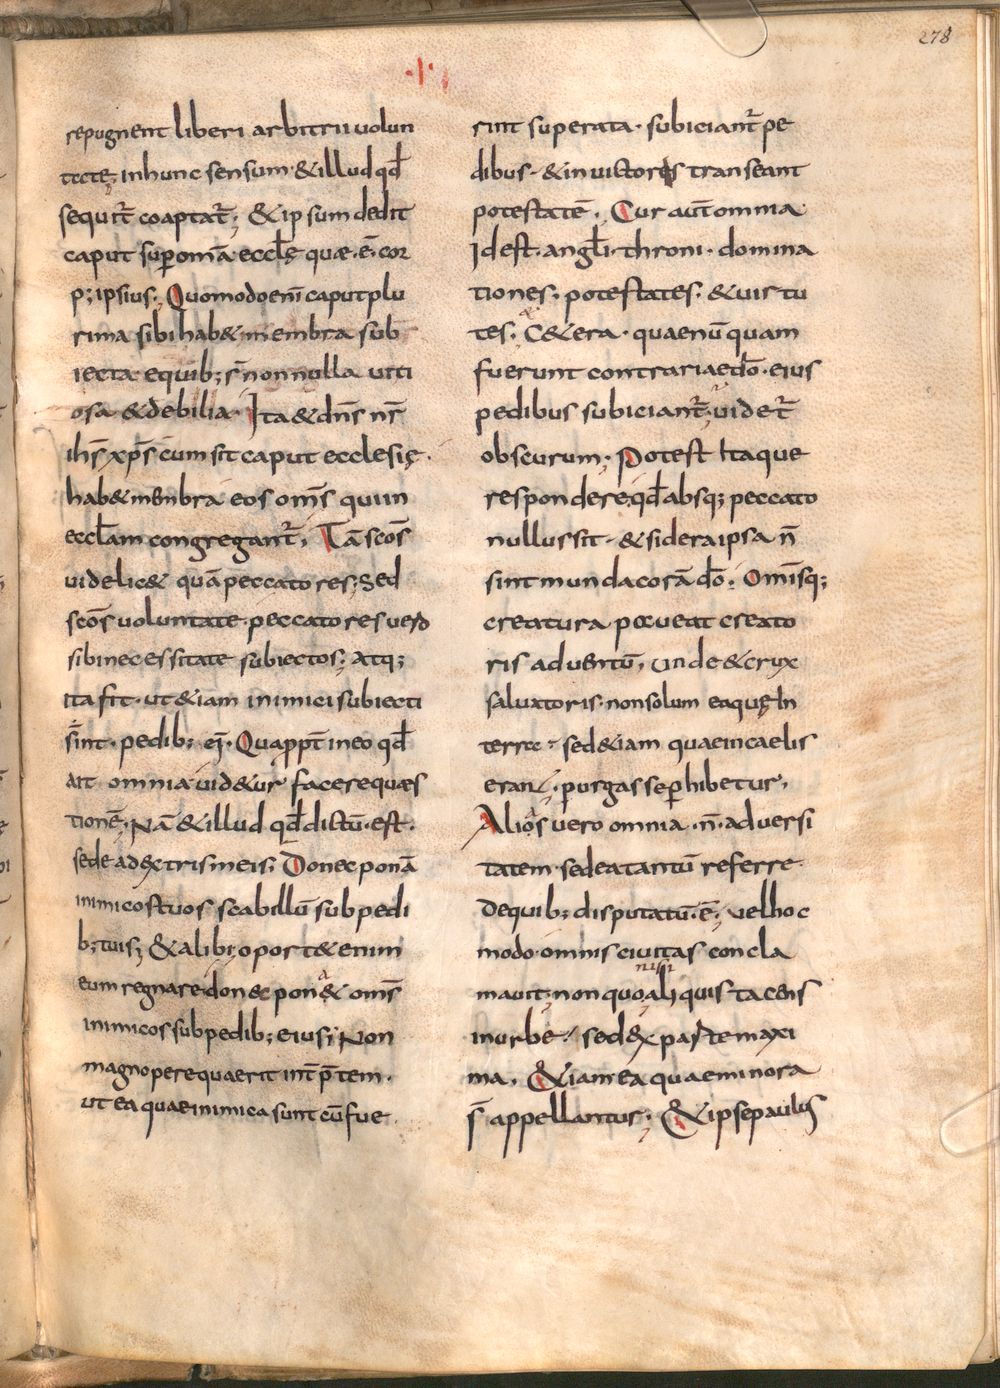 278
·I·
repugnent liberi arbitrii uolun
tate; inhunc sensum·&illud qđ
sequit̄ coaptat̄; &ipsum dedit
caput sup̱omā eccłę quæ·ē·cor
p;ipsius; Quomodo enī caput plu
rima sibi hab& membra sub
iecta equib;s̄ non nulla uiti
osa &debilia· Ita &dn̄s nr̄
ih̄s xp̄s cum sit caput ecclesię·
hab& menbra eos om̄s qui in
eccłam congregant̄; Tā sc̄os
uidelic& quā peccatores; Sed
sc̄os uoluntate peccatores uero
sibi necessitate subiectos; Atq;
ita fit·ut &iam inimici subiecti
sint·pedib; ei·Quapp̄t ineo qđ
ait omnia uid&ur facere quæs
tionē; Nā &illud qđ dictū·est·
sede adextris meis; Donec ponā
inimicos tuos scabillū sub pedi
b;tuis; &alibi; oport& enim
eum regnare donec pon&ͣ om̄s
inimicos sub pedib; eius; Non
magnopere quaerit int̄p̄tem·
ut ea quae inimica sunt cū fue
rint superata·subiciant̄ pe
dibus·&in uictoris transeant
potestatē; Cur aut̄ omnia
Id est·angłi·throni·domina
tiones·potestates·&uirtu
tes·C&era·quae nū quam
fuerunt contraria do·eius
pedibus subiciant̄ uidet̄
obscurum; Potest Itaque
respondere qđ absq; peccato
nullus sit·&sidera ipsa n̄
sint munda corā dō; Omīsq;
creatura paueat creato
ris aduentū, unde &crux
saluatoris·non solum ea quę In
terra·sed&iam quae incaelis
erant·purgasse p̱hibetur;
Alios uero omnia·n̄·aduersi
tatem·sed ea tantū referre
dequib; disputatū·ē; uel hoc
modo·omnis ciuitas concla
mauit; non quo aliquis tacens
nissi
inurbe· sed ex parte maxi
ma· &iam ea quae minora
s̄ appellantur; &ipse paulus